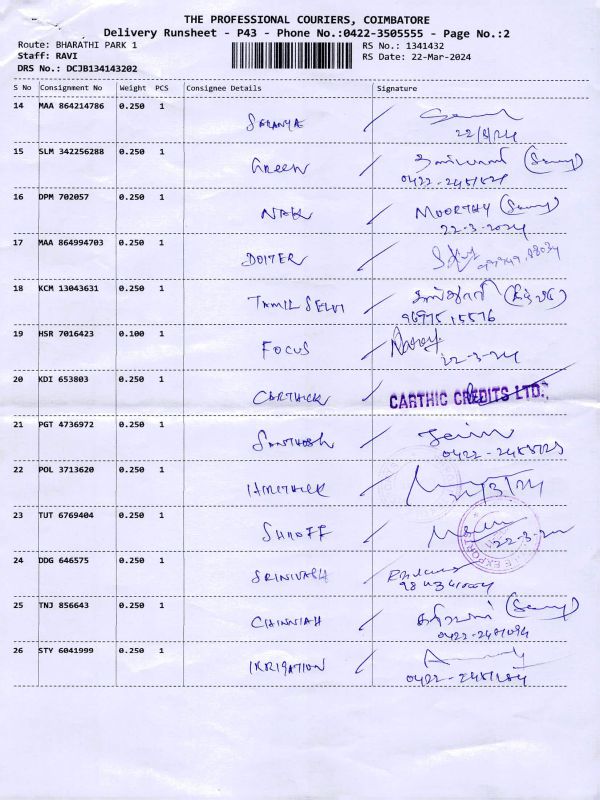 THE PROFESSIONAL COURIERS, COIMBATORE
Delivery Runsheet - P43 - Phone No.:0422-3505555 - Page No.:2
Route: BHARATHI PARK 1 RS No.: 1341432
Staff: RAVI RS Date: 22-Mar-2024
DRS No.: DCJB134143202
S No Consignment No Weight PCS Consignee Details Signature
14 MAA 864214786 0.250 1 SARANYA
22/3/24
15 SLM 342256288 0.250 1 Green
16 DPM 702057 0.250 1 NAK MOORTHY
22-3-2024
17 MAA 864994703 0.250 1 DOITER
18 KCM 13043631 0.250 1 TAMIL SELVI
96975 15576
19 HSR 7016423 0.100 1 FOCUS
22-3-24
20 KDI 653803 0.250 1 CARTHICK CARTHIC CREDITS LTD.,
21 PGT 4736972 0.250 1 SANTHOSH
22 POL 3713620 0.250 1 HRITHICK
21/3/24
23 TUT 6769404 0.250 1 SHROFF
22-3-24
24 DDG 646575 0.250 1 SRINIVASA
25 TNJ 856643 0.250 1 CHINNIAH
26 STY 6041999 0.250 1 IRRIGATION